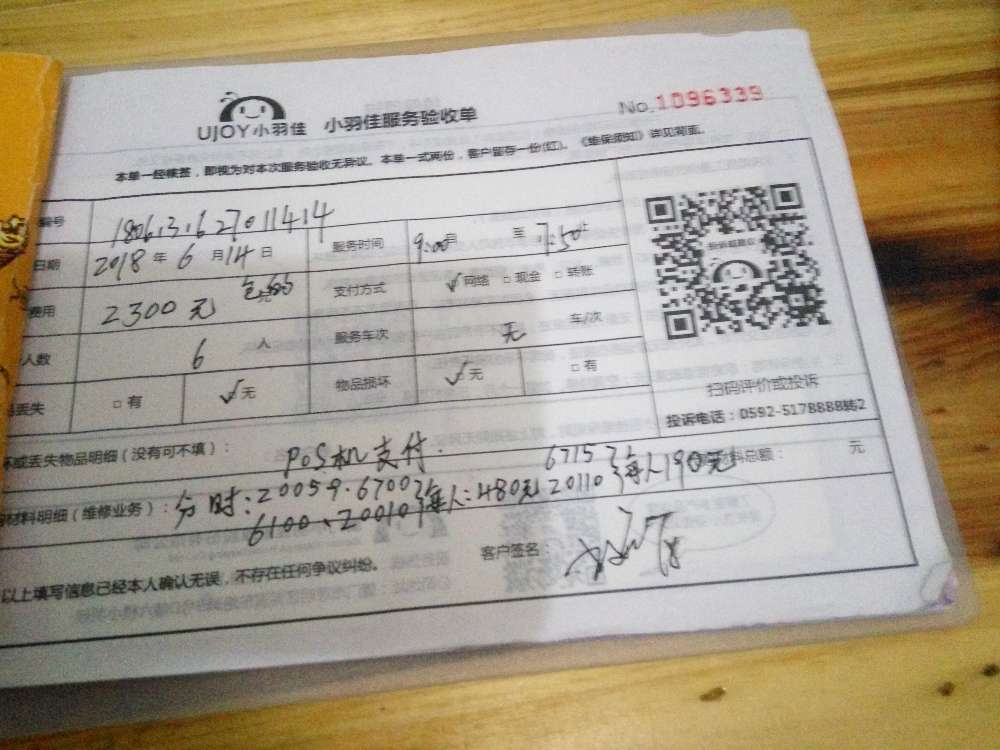 UJOY小羽佳 小羽佳服务验收单 No.1096339
本单一经核签，即视为对本次服务验收无异议。本单一式两份，客户留存一份(红)。《维保须知》详见背面。
编号 180613627011414
日期 2018年6月14日 服务时间 9:00 至 17:50
费用 2300元 支付方式 ✓网络 □现金 □转账
人数 6人 服务车次 无 车/次
丢失 □有 ✓无 物品损坏 ✓无 □有
扫码评价或投诉
投诉电话：0592-5178888转2
坏或丢失物品明细（没有可不填）： POS机支付.
材料明细（维修业务）： 分时：20059.6700 每人：480元 材料总额： 元
6715 20110 每人190元
6100、20010
以上填写信息已经本人确认无误，不存在任何争议纠纷。 客户签名：